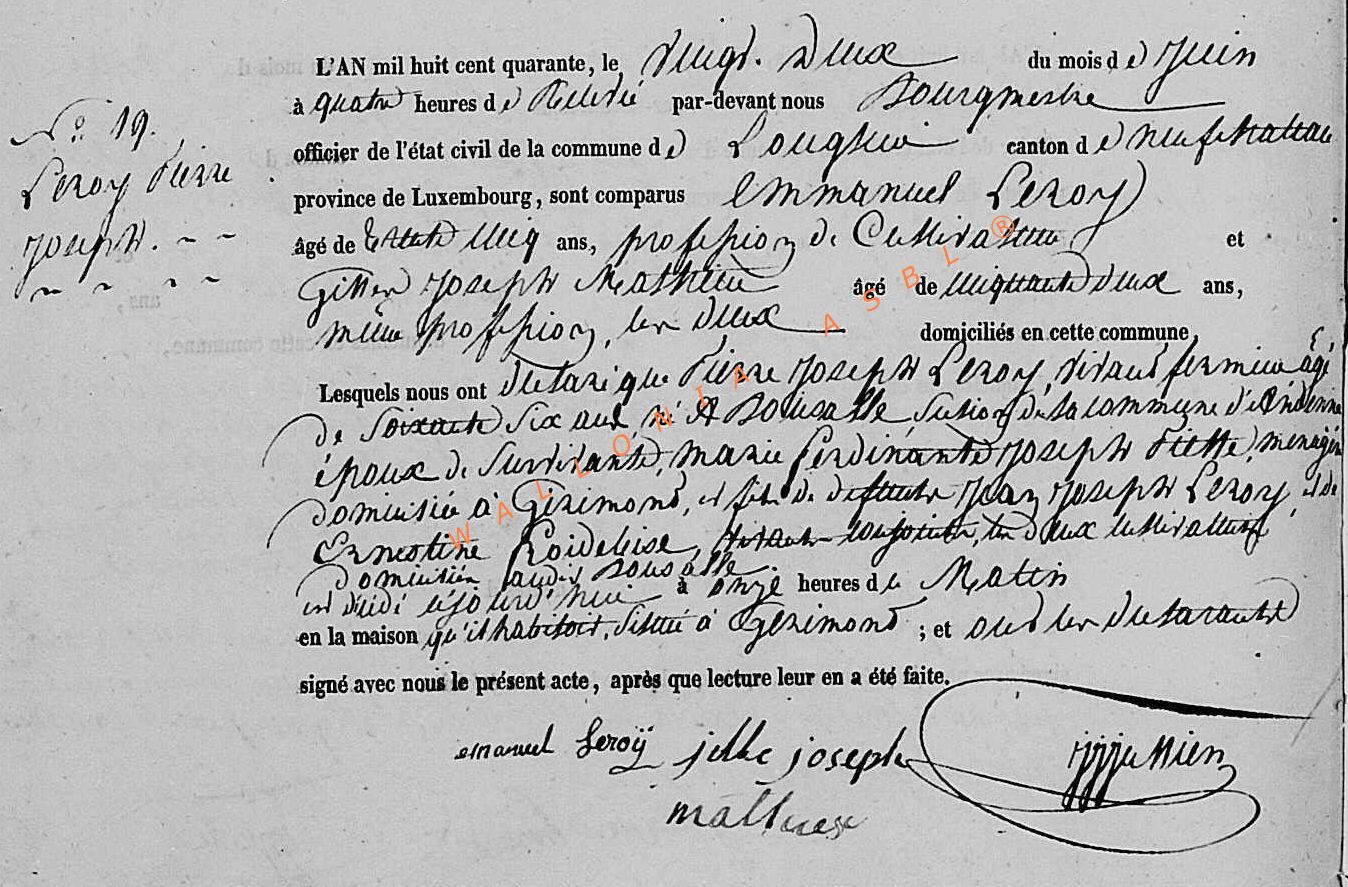 N.o 19.
Leroy Pierre
Joseph. - -
L'AN mil huit cent quarante, le vingt-Deux du mois de Juin
à quatre heures de Relevée par-devant nous Bourgmestre
officier de l'état civil de la commune de Longlier canton de Neufchateau
province de Luxembourg, sont comparus Emmanuel Leroy
âgé de trente cinq ans, profession de Cultivateur et
Gilles Joseph Mathieu âgé de cinquante deux ans,
même profession, les deux domiciliés en cette commune,
Lesquels nous ont déclaré que Pierre Joseph Leroy, vivant fermier âgé
de soixante six ans, né à Bousalle, section de la commune d'Andenne
époux de survivante, Marie Ferdinande Joseph Piette, menagère
domiciliée à Gérimont, et fils de défunts Jean Joseph Leroy, et de
Ernestine, les deux cultivateurs,
domiciliés audit Bousalle
est décédé cejourd'hui à onze heures du Matin
en la maison qu'il habitoit, située à Gérimont ; et ont les déclarants
signé avec nous le présent acte, après que lecture leur en a été faite.
emanuel Leroÿ jille joseph
mathieux
WALLONIA ASBL ®